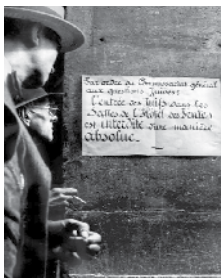 Par ordre du Commissariat général
aux questions Juives
L'entrée des Juifs dans les
Salles de l'Hôtel des Ventes
est interdite d'une manière
absolue.